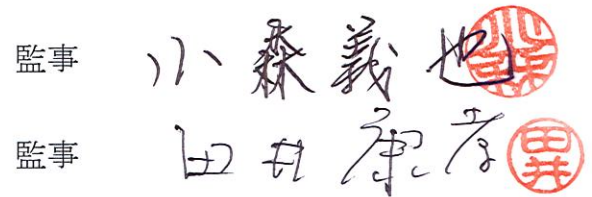 監事 小森義也 小森
監事 田井康孝 田井